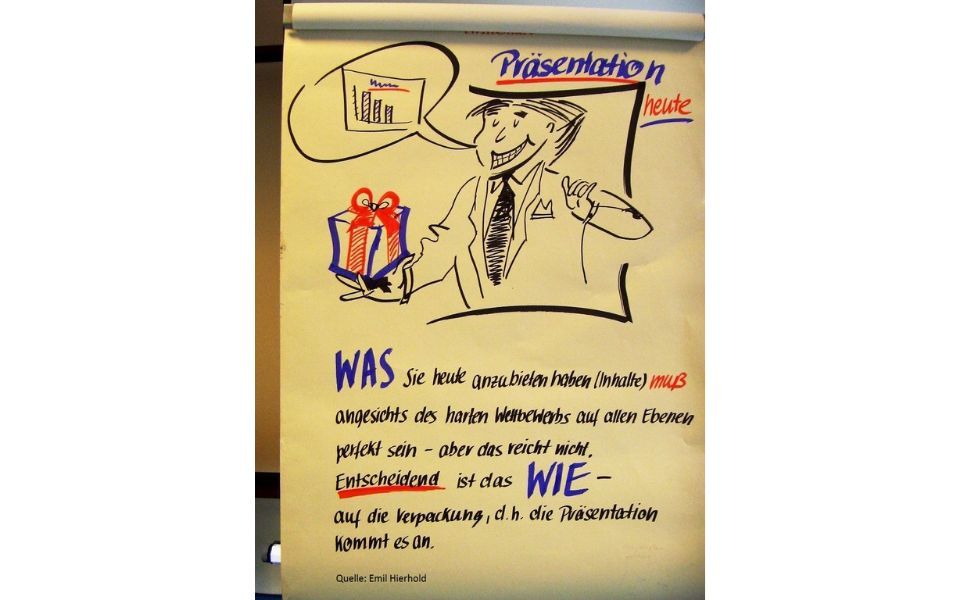 Präsentation
heute
WAS Sie heute anzubieten haben (Inhalte) muß
angesichts des harten Wettbewerbs auf allen Ebenen
perfekt sein – aber das reicht nicht.
Entscheidend ist das WIE –
auf die Verpackung, d.h. die Präsentation
kommt es an.
Quelle: Emil Hierhold